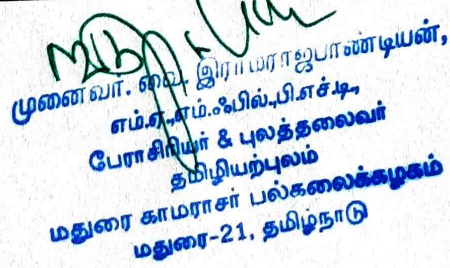 முனைவர். வை. இராமராஜபாண்டியன்,
எம்.ஏ.,எம்.ஃபில்.,பி.எச்.டி.,
பேராசிரியர் & புலத்தலைவர்
தமிழியற்புலம்
மதுரை காமராசர் பல்கலைக்கழகம்
மதுரை-21, தமிழ்நாடு